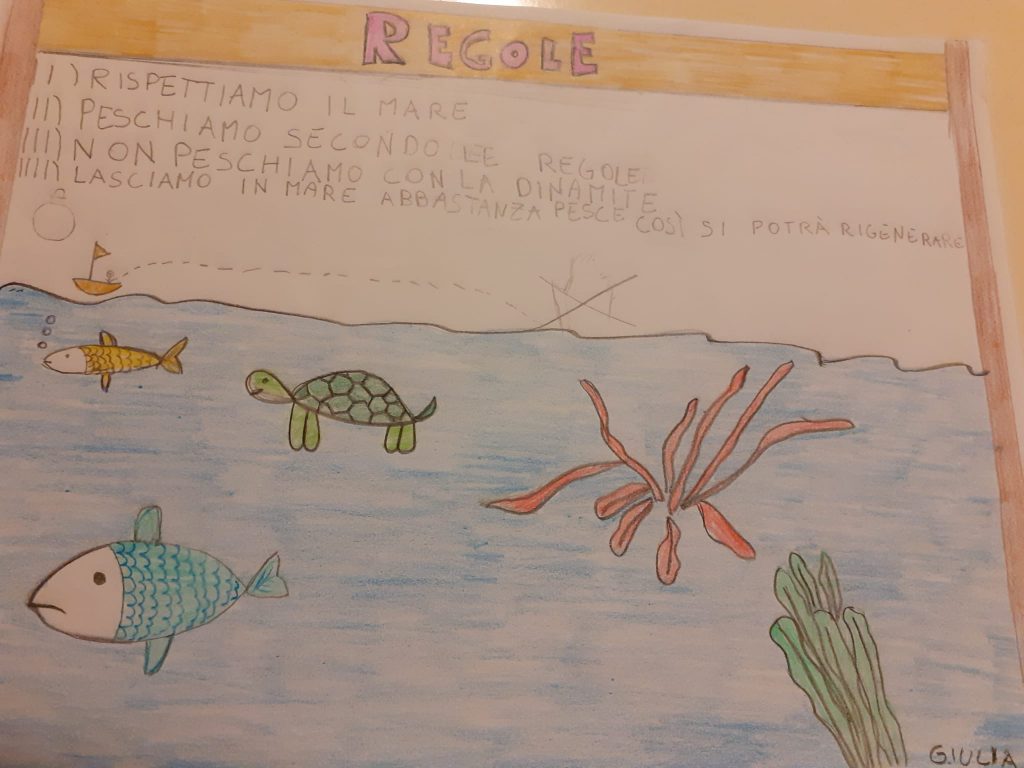 REGOLE
I) RISPETTIAMO IL MARE
II) PESCHIAMO SECONDO LE REGOLE
III) NON PESCHIAMO CON LA DINAMITE
IIII) LASCIAMO IN MARE ABBASTANZA PESCE COSÌ SI POTRÀ RIGENERARE
GIULIA